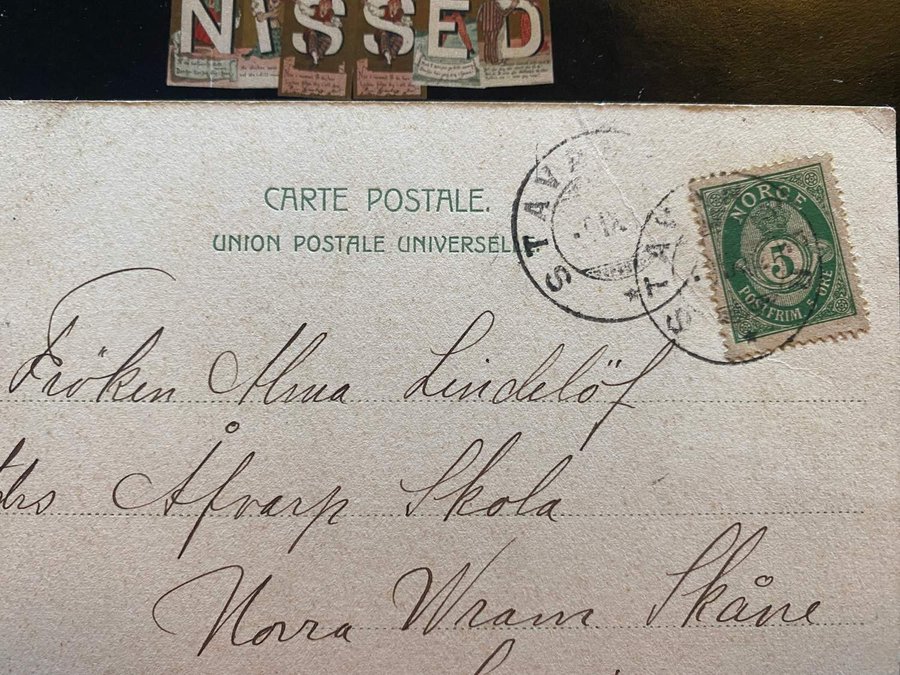 NISSED
CARTE POSTALE.
UNION POSTALE UNIVERSELLE
STAVA
STAV
NORGE
5
POSTFRIM. 5 ØRE
Fröken Alma Lindelöf
Åfvarp Skola
Norra Wram Skåne